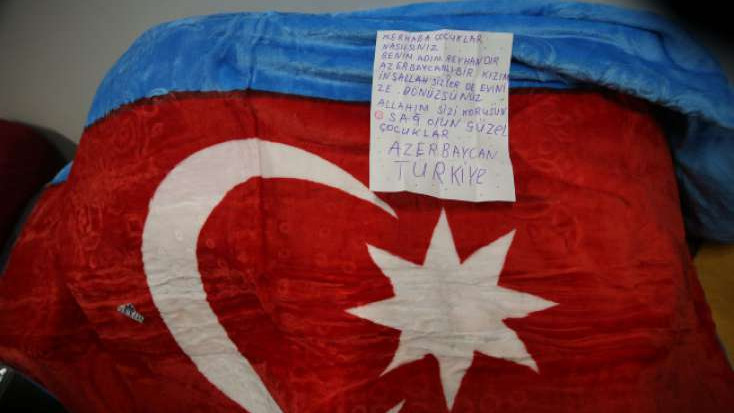 MERHABA ÇOCUKLAR
NASILSINIZ
BENIM ADIM REYHANDIR
AZERBAYCANLIBIR KIZIM
INŞALLAH SIZLER DE EVINI
ZE DÖNÜZSÜNÜZ
ALLAHIM SIZI KORUSUN
SAĞ OlUN GÜZEL
ÇOCUKLAR
AZERBAYCAN
TURKIYE